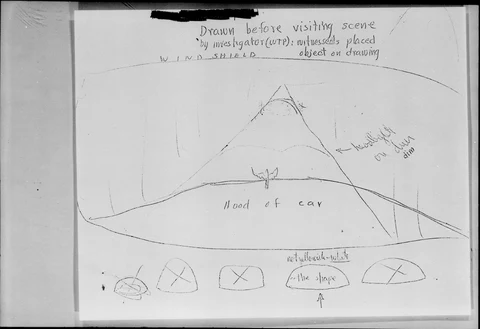 Drawn before visiting scene
by investigator (WTP): witnesses placed
object on drawing
WIND SHIELD
headlights
on dim
dim
Hood of car
the shape